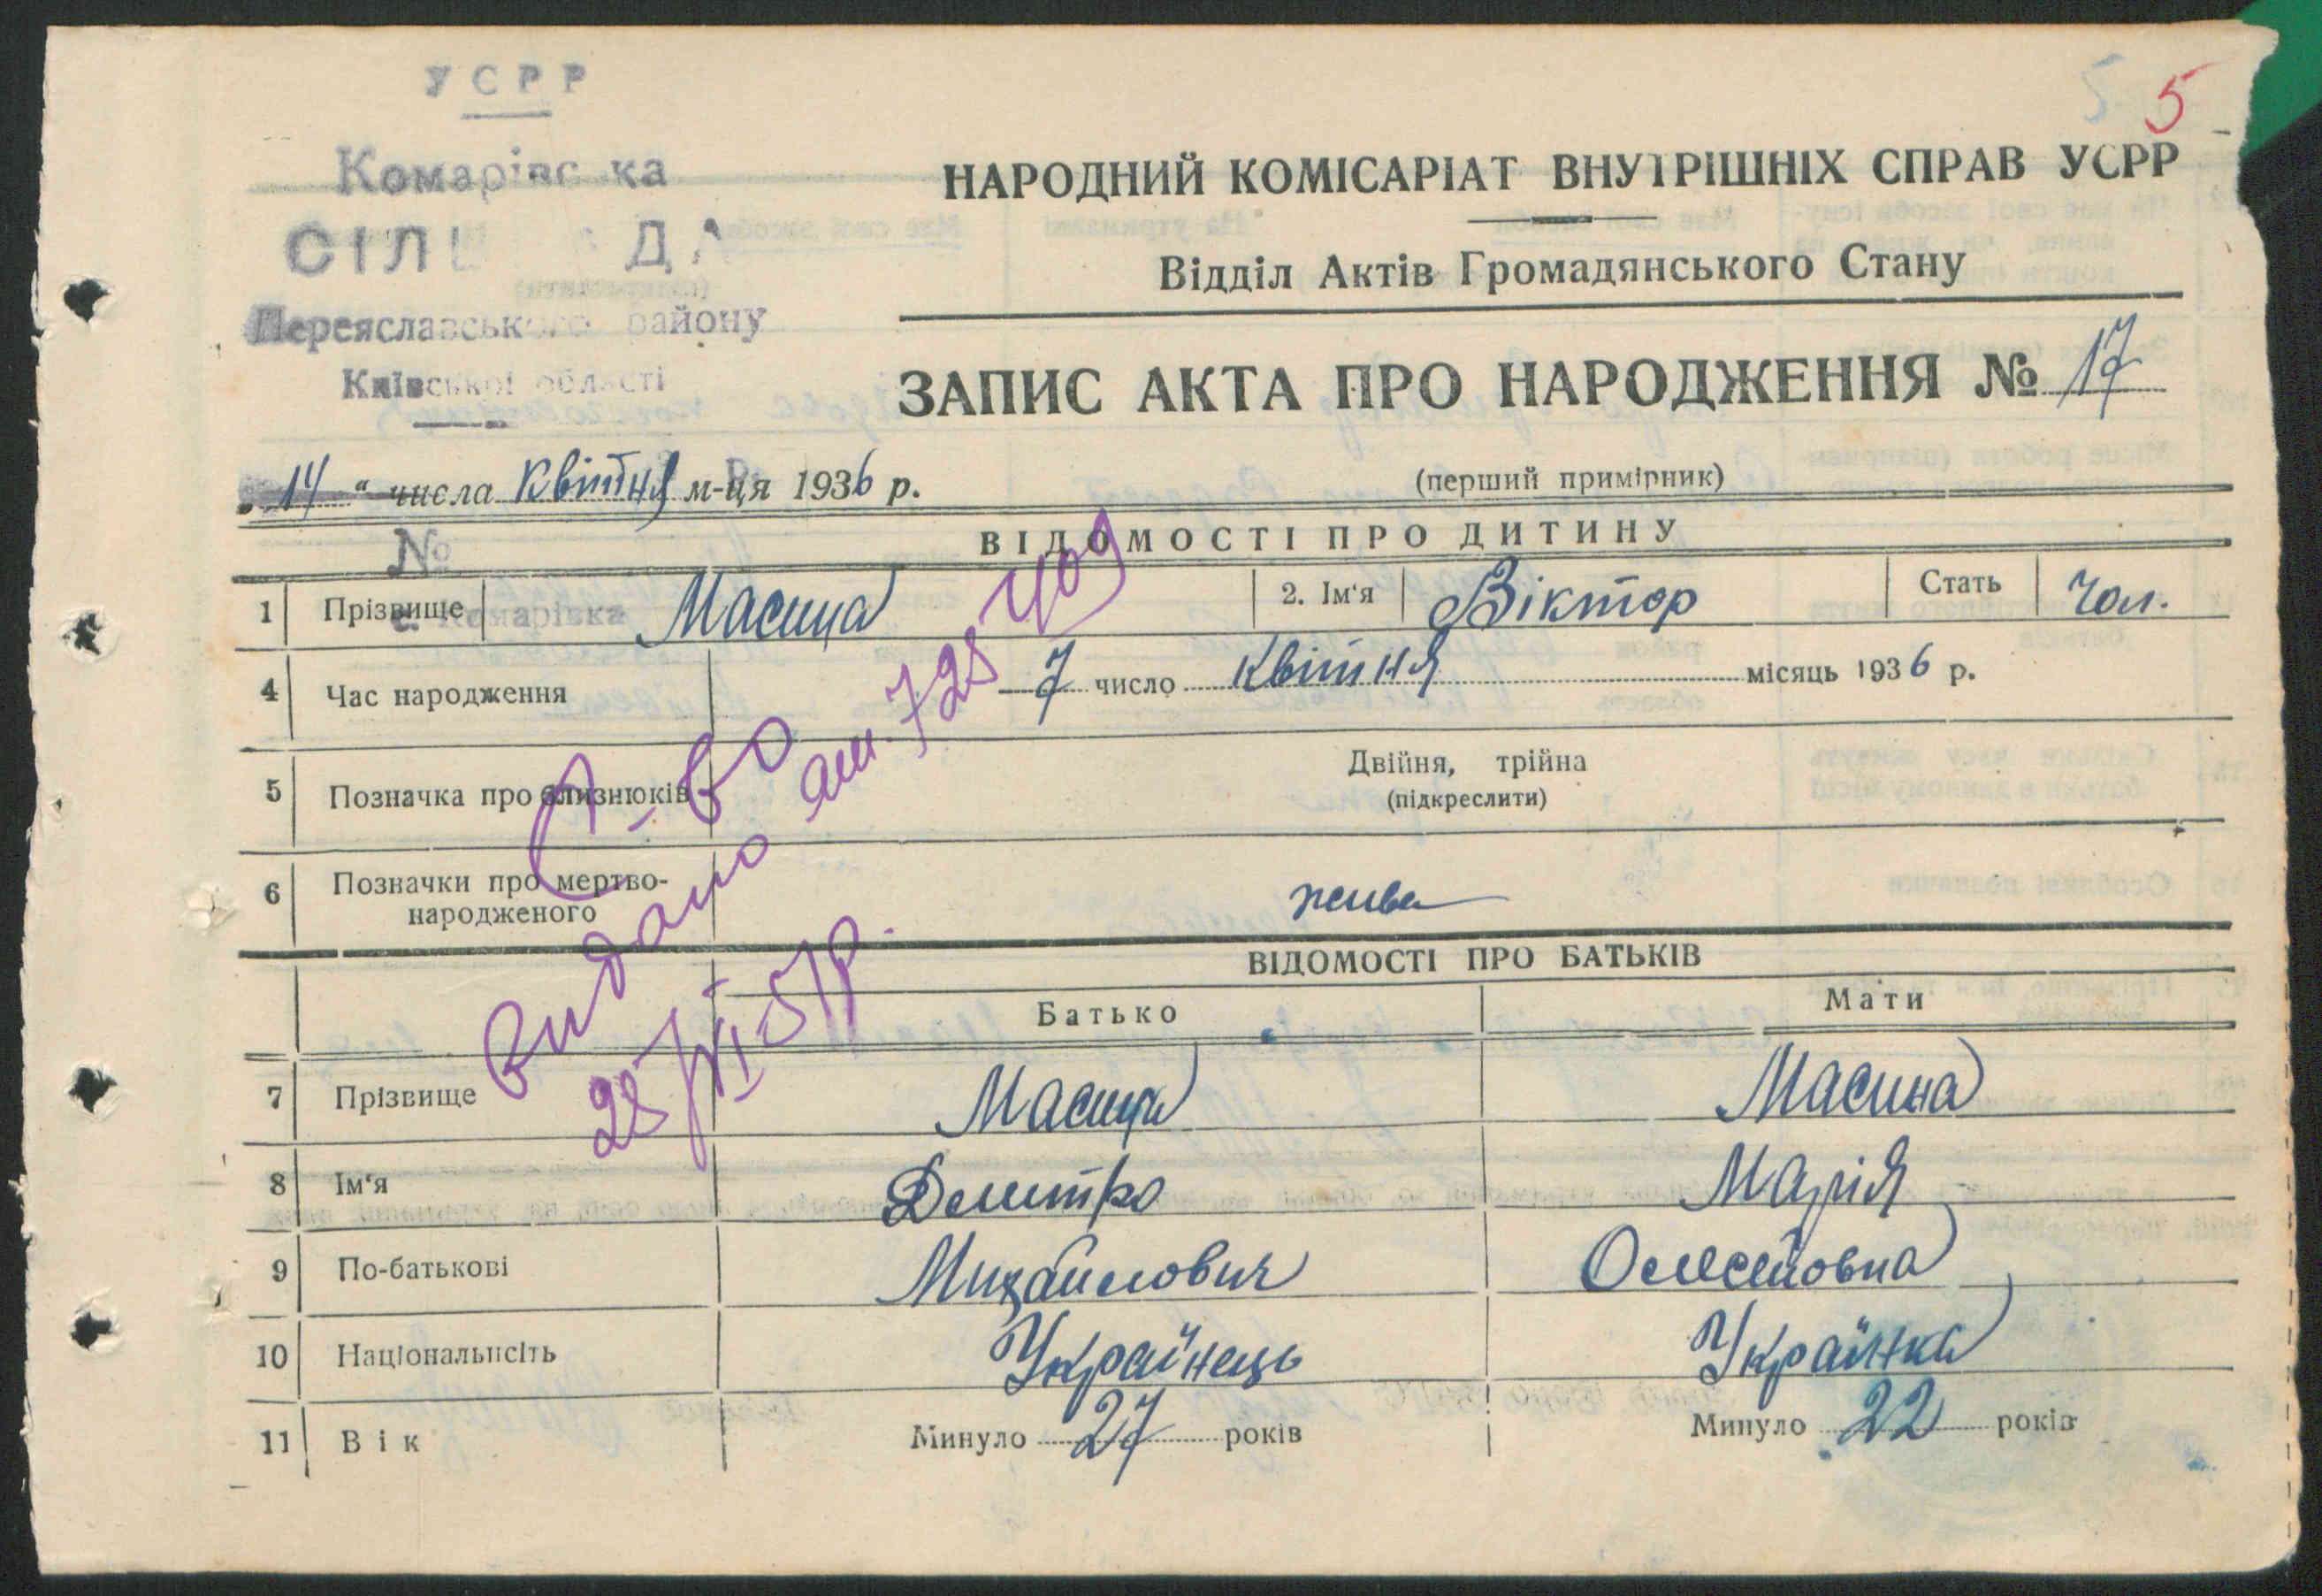 5 5
УСРР
Комарівська
СІЛ ДА
Переяславського району
Київської області
НАРОДНИЙ КОМІСАРІАТ ВНУТРІШНІХ СПРАВ УСРР
Відділ Актів Громадянського Стану
ЗАПИС АКТА ПРО НАРОДЖЕННЯ № 17
(перший примірник)
„14" числа квітня м-ця 1936 р.
№
с. Комарівка
ВІДОМОСТІ ПРО ДИТИНУ
1 Прізвище Масица 2. Ім'я Віктор Стать Чол.
4 Час народження 7 число квітня місяць 1936 р.
5 Позначка про близнюків Двійня, трійна
(підкреслити)
6 Позначки про мертво-
народженого живе
С-во
видано ат. 725409
28/VI-51р.
ВІДОМОСТІ ПРО БАТЬКІВ
Батько Мати
7 Прізвище Масица Масица
8 Ім'я Дмитро Марія
9 По-батькові Михайлович
10 Національнсіть Українець Українка
11 Вік Минуло 27 років Минуло 22 років